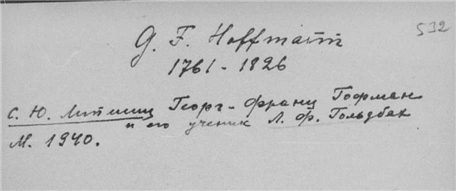 532
G. F. Hoffmann
1761 - 1826
С. Ю. Липшиц Георг-Франц Гофман
и его ученик Л. Ф. Гольдбах
М. 1940.